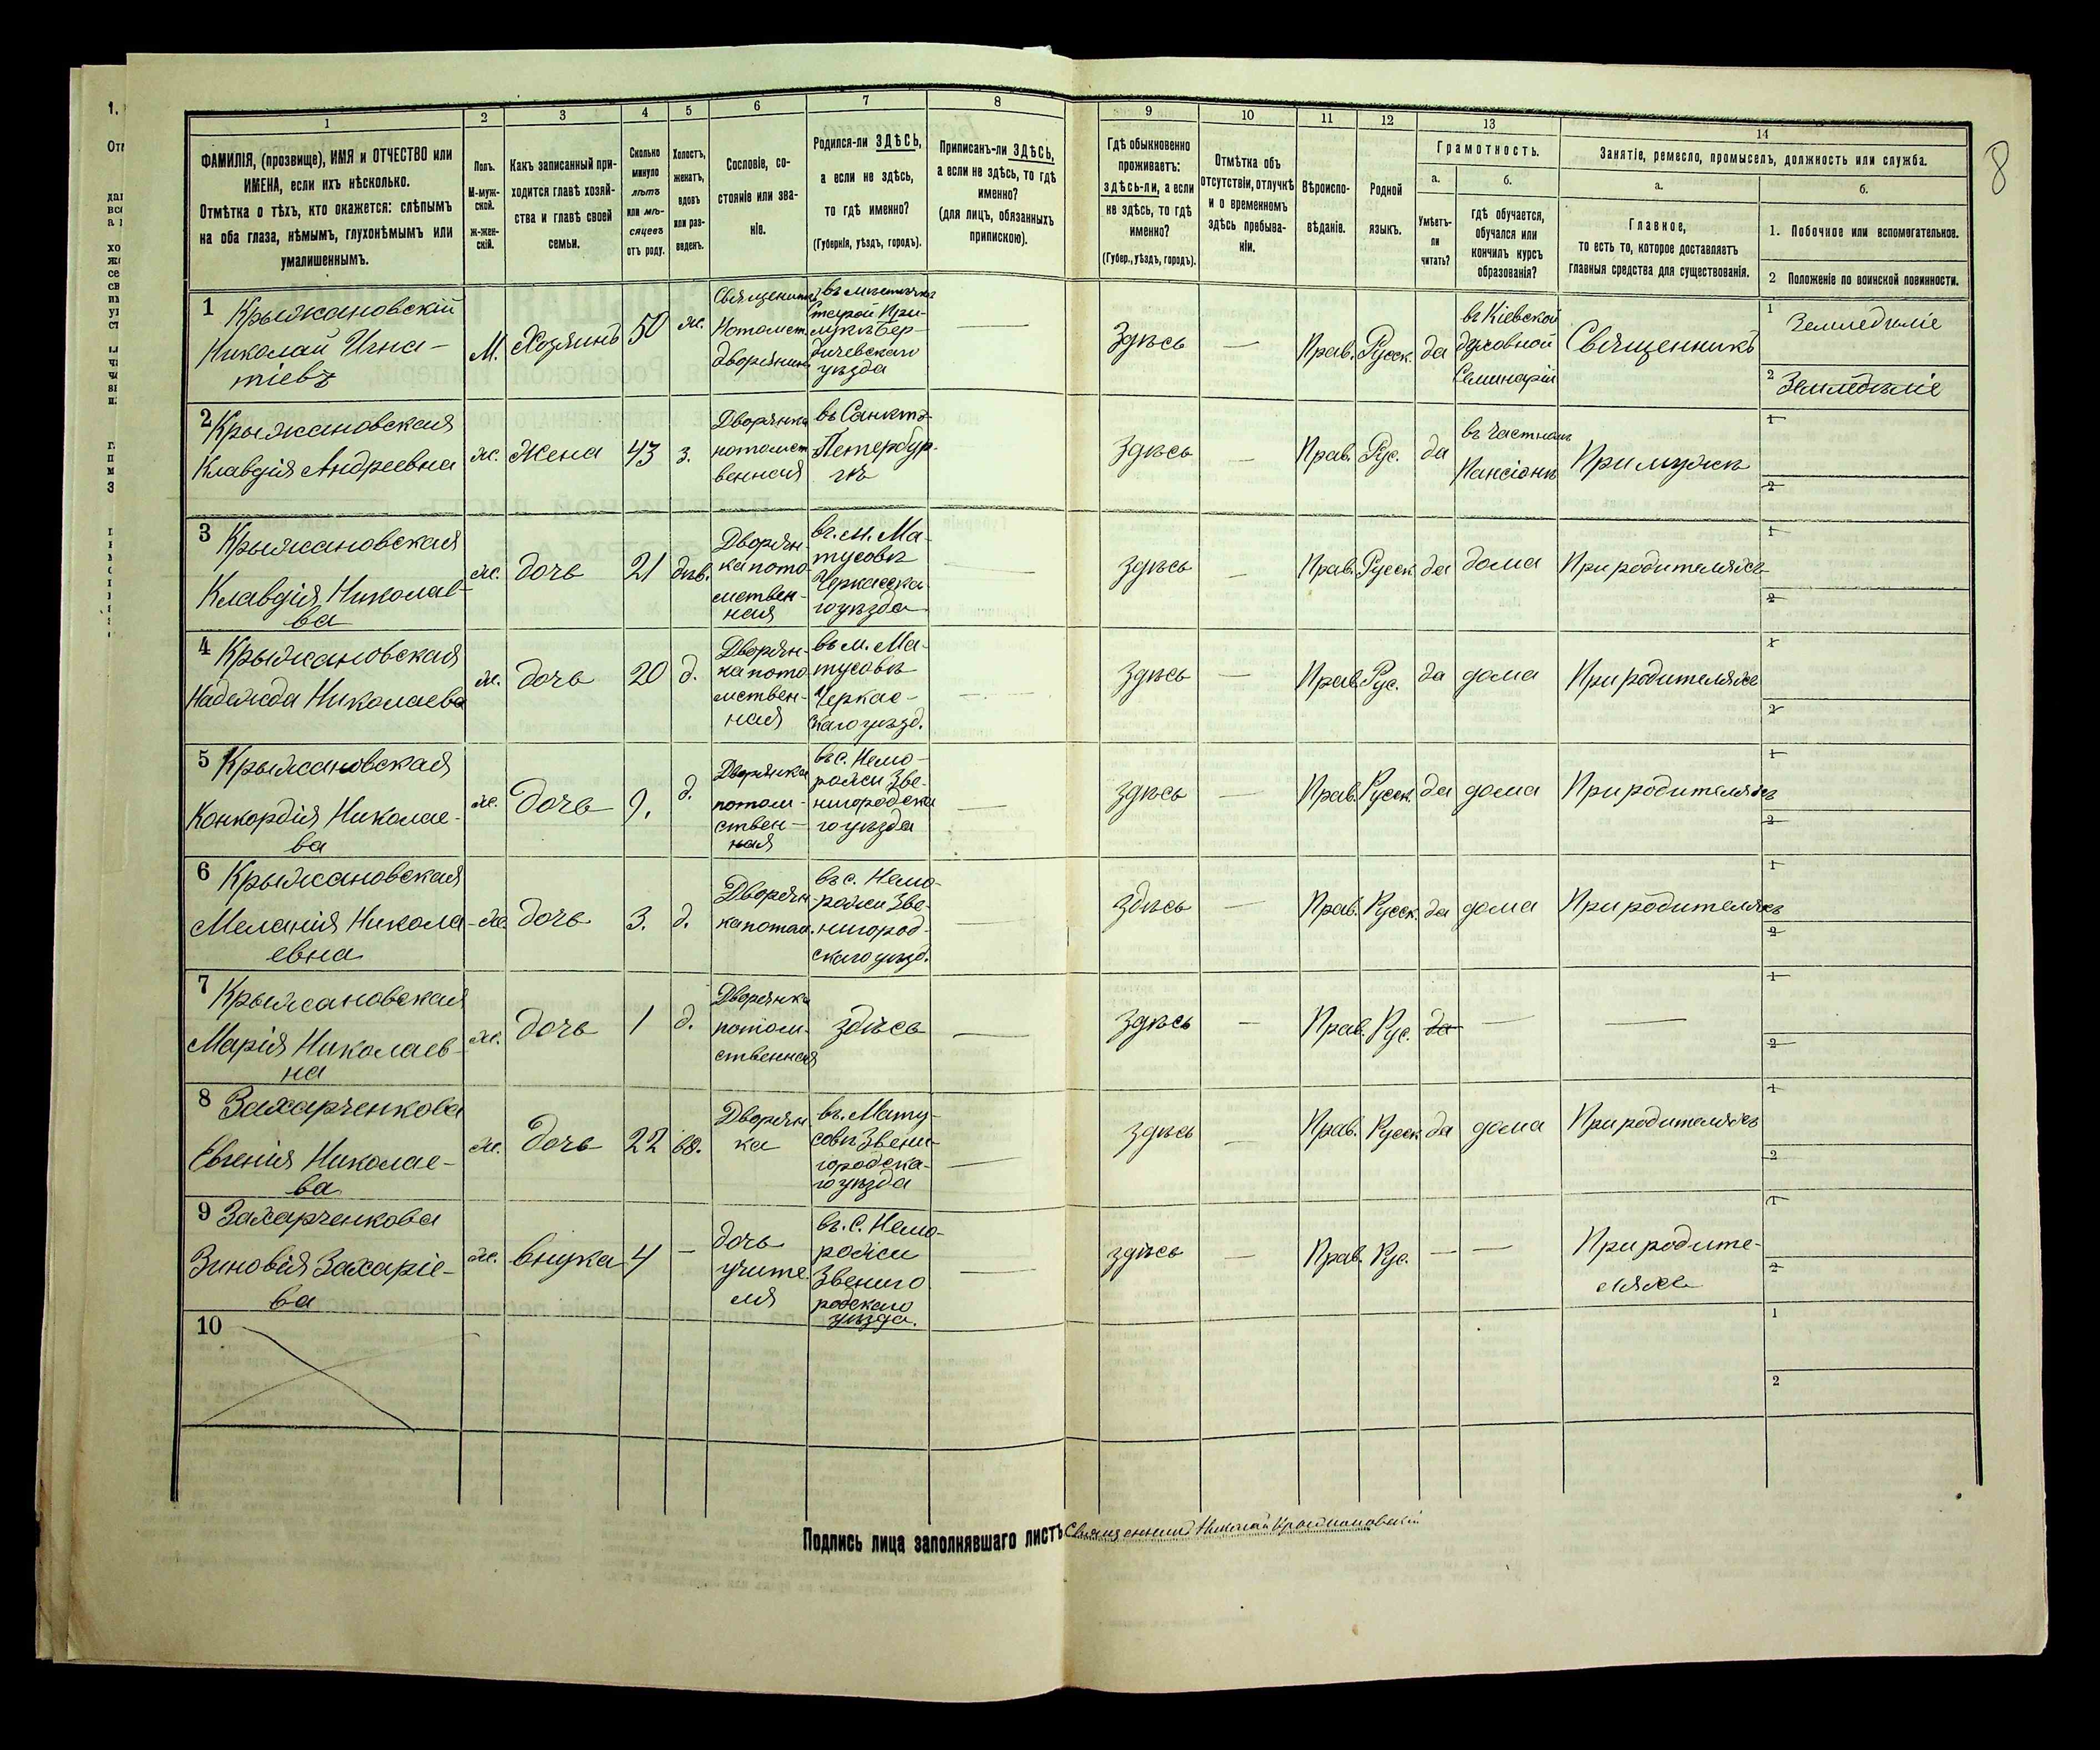 8
1
2
3
4
5
6
7
8
9
10
11
12
13
14
ФАМИЛІЯ, (прозвище), ИМЯ и ОТЧЕСТВО или
ИМЕНА, если ихъ нѣсколько.
Отмѣтка о тѣхъ, кто окажется: слѣпымъ
на оба глаза, нѣмымъ, глухонѣмымъ или
умалишеннымъ.
Полъ.
М-муж-
ской.
Ж-жен-
скій.
Какъ записанный при-
ходится главѣ хозяй-
ства и главѣ своей
семьи.
Сколько
минуло
лѣтъ
или мѣ-
сяцевъ
отъ роду.
Холостъ,
женатъ,
вдовъ
или раз-
веденъ.
Сословіе, со-
стояніе или зва-
ніе.
Родился-ли ЗДѢСЬ,
а если не здѣсь,
то гдѣ именно?
(Губернія, уѣздъ, городъ).
Приписанъ-ли ЗДѢСЬ,
а если не здѣсь, то гдѣ
именно?
(для лицъ, обязанныхъ
припискою).
Гдѣ обыкновенно
проживаетъ:
здѣсь-ли, а если
не здѣсь, то гдѣ
именно?
(Губер., уѣздъ, городъ).
Отмѣтка объ
отсутствіи, отлучкѣ
и о временномъ
здѣсь пребыва-
ніи.
Вѣроиспо-
вѣданіе.
Родной
языкъ.
Грамотность.
а.
б.
Умѣетъ-
ли
читать?
гдѣ обучается,
обучался или
кончилъ курсъ
образованія?
Занятіе, ремесло, промыселъ, должность или служба.
а.
б.
Главное,
то есть то, которое доставляетъ
главныя средства для существованія.
1. Побочное или вспомогательное.
2 Положеніе по воинской повинности.
1 Крыжановскій
Николай Игна-
тіевъ
М.
Хозяинъ
50
ж.
Священникъ
Потомст.
дворянинъ
въ мѣстечкѣ
Старой При-
лукѣ Бер-
дичевскаго
уѣзда
здѣсь
Прав.
Русск.
да
въ Кіевской
духовной
Семинаріи
Священникъ
1 Земледѣліе
2 Земледѣліе
2 Крыжановская
Клавдія Андреевна
ж.
Жена
43
з.
Дворянка
потомст
венная
въ Санктъ-
Петербур-
гѣ
здѣсь
Прав.
Рус.
да
въ частномъ
Пансіонѣ
При мужѣ
1
2
3 Крыжановская
Клавдія Николае-
ва
ж.
дочь
21
дѣв.
Дворян-
ка пото
мствен-
ная
въ. м. Ма-
тусовѣ
Черкасска-
го уѣзда
здѣсь
Прав.
Русск.
да
дома
При родителяхъ
1
2
4 Крыжановская
Надежда Николаева
ж.
дочь
20
д.
Дворян-
ка пото
мствен-
ная
въ м. Ма-
тусовѣ
Черкас-
скаго уѣзд.
здѣсь
Прав.
Рус.
да
дома
При родителяхъ
1
2
5 Крыжановская
Конкордія Николае-
ва
ж.
дочь
9.
д.
Дворянка
потом-
ствен-
ная
въ с. Немо-
рожи Зве-
нигородска
го уѣзда
здѣсь
Прав.
Русск.
да
дома
При родителяхъ
1
2
6 Крыжановская
Меланія Никола-
евна
ж.
дочь
3.
д.
Дворян-
ка потом.
въ с. Немо-
рожи Зве-
нигород-
скаго уѣзд.
здѣсь
Прав.
Русск.
да
дома
При родителяхъ
1
2
7 Крыжановская
Марія Николаев-
на
ж.
дочь
1
д.
Дворянка
потом-
ственная
здѣсь
здѣсь
Прав.
Рус.
да
1
2
8 Захарченкова
Евгенія Николае-
ва
ж.
дочь
22
вд.
Дворян
ка
въ. Мату-
совѣ Звени-
городска-
го уѣзда
здѣсь
Прав.
Русск
да
дома
При родителяхъ
1
2
9 Захарченкова
Зиновія Захаріе-
ва
ж.
внука
4
дочь
учите
ля
въ. с. Немо-
рожи
Звениго
родскаго
уѣзда.
здѣсь
Прав.
Рус.
При родите-
ляхъ
1
2
10
1
2
Подпись лица заполнявшаго листъ Священникъ Николай Крыжановскій